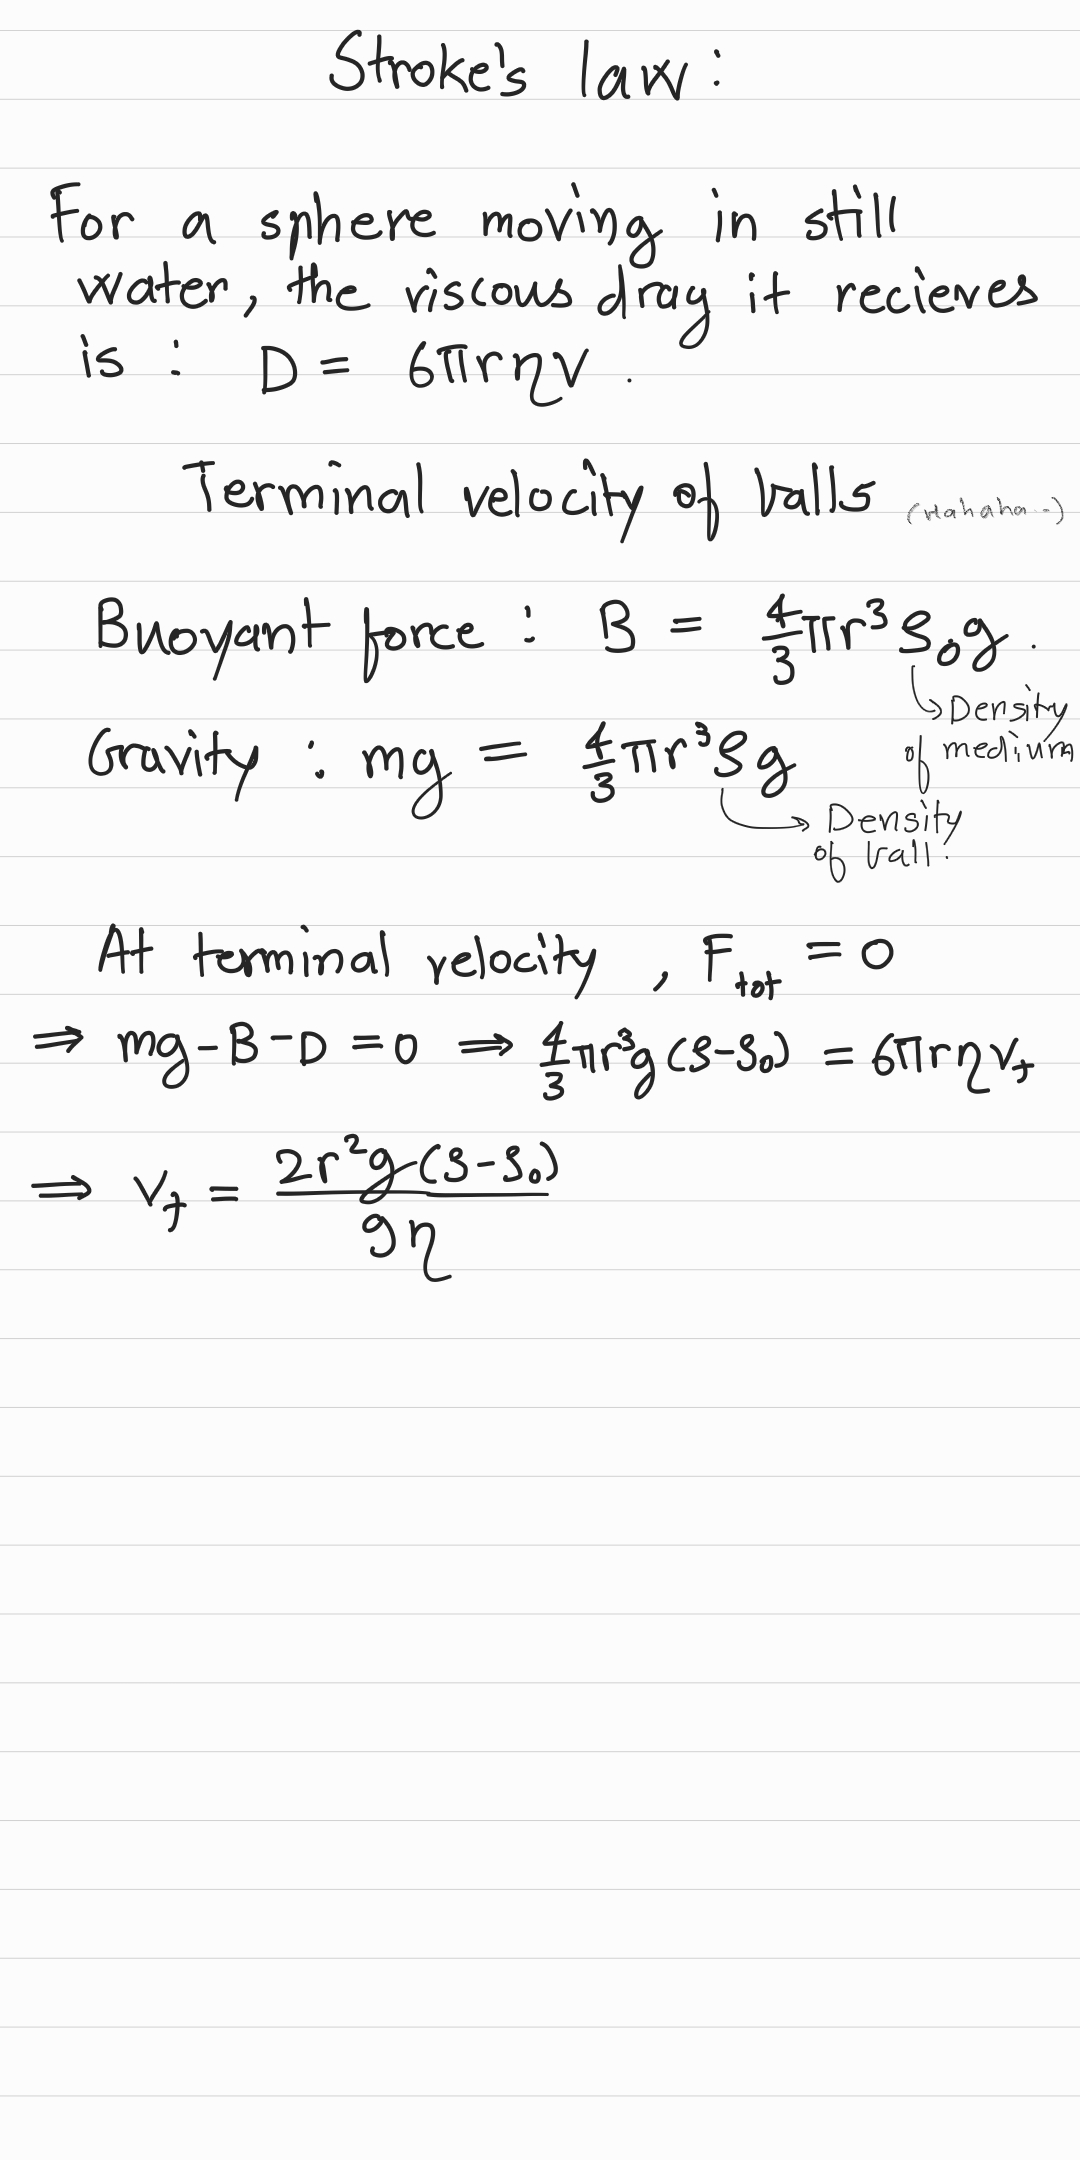 Stroke's law :
For a sphere moving in still
water, the viscous drag it recieves
is : D = 6πrηv .
Terminal velocity of balls (Hahaha--)
Buoyant force : B = 4/3 πr³ρ₀g .
↳ Density
of medium
Gravity : mg = 4/3 πr³ρg
↳ Density
of ball.
At terminal velocity , F_tot = 0
⇒ mg - B - D = 0 ⇒ 4/3 πr³g (ρ-ρ₀) = 6πrηv_t
⇒ v_t = 2r²g(ρ-ρ₀) / 9η